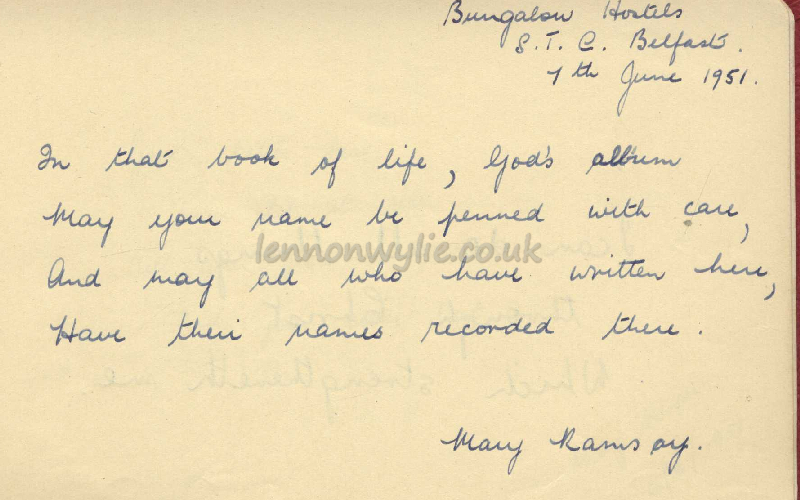 Bungalow Hostels
S. T. C. Belfast.
7th June 1951.
In that book of life, God's album
May your name be penned with care,
lennonwylie.co.uk
And may all who have written here,
Have their names recorded there.
Mary Ramsay.